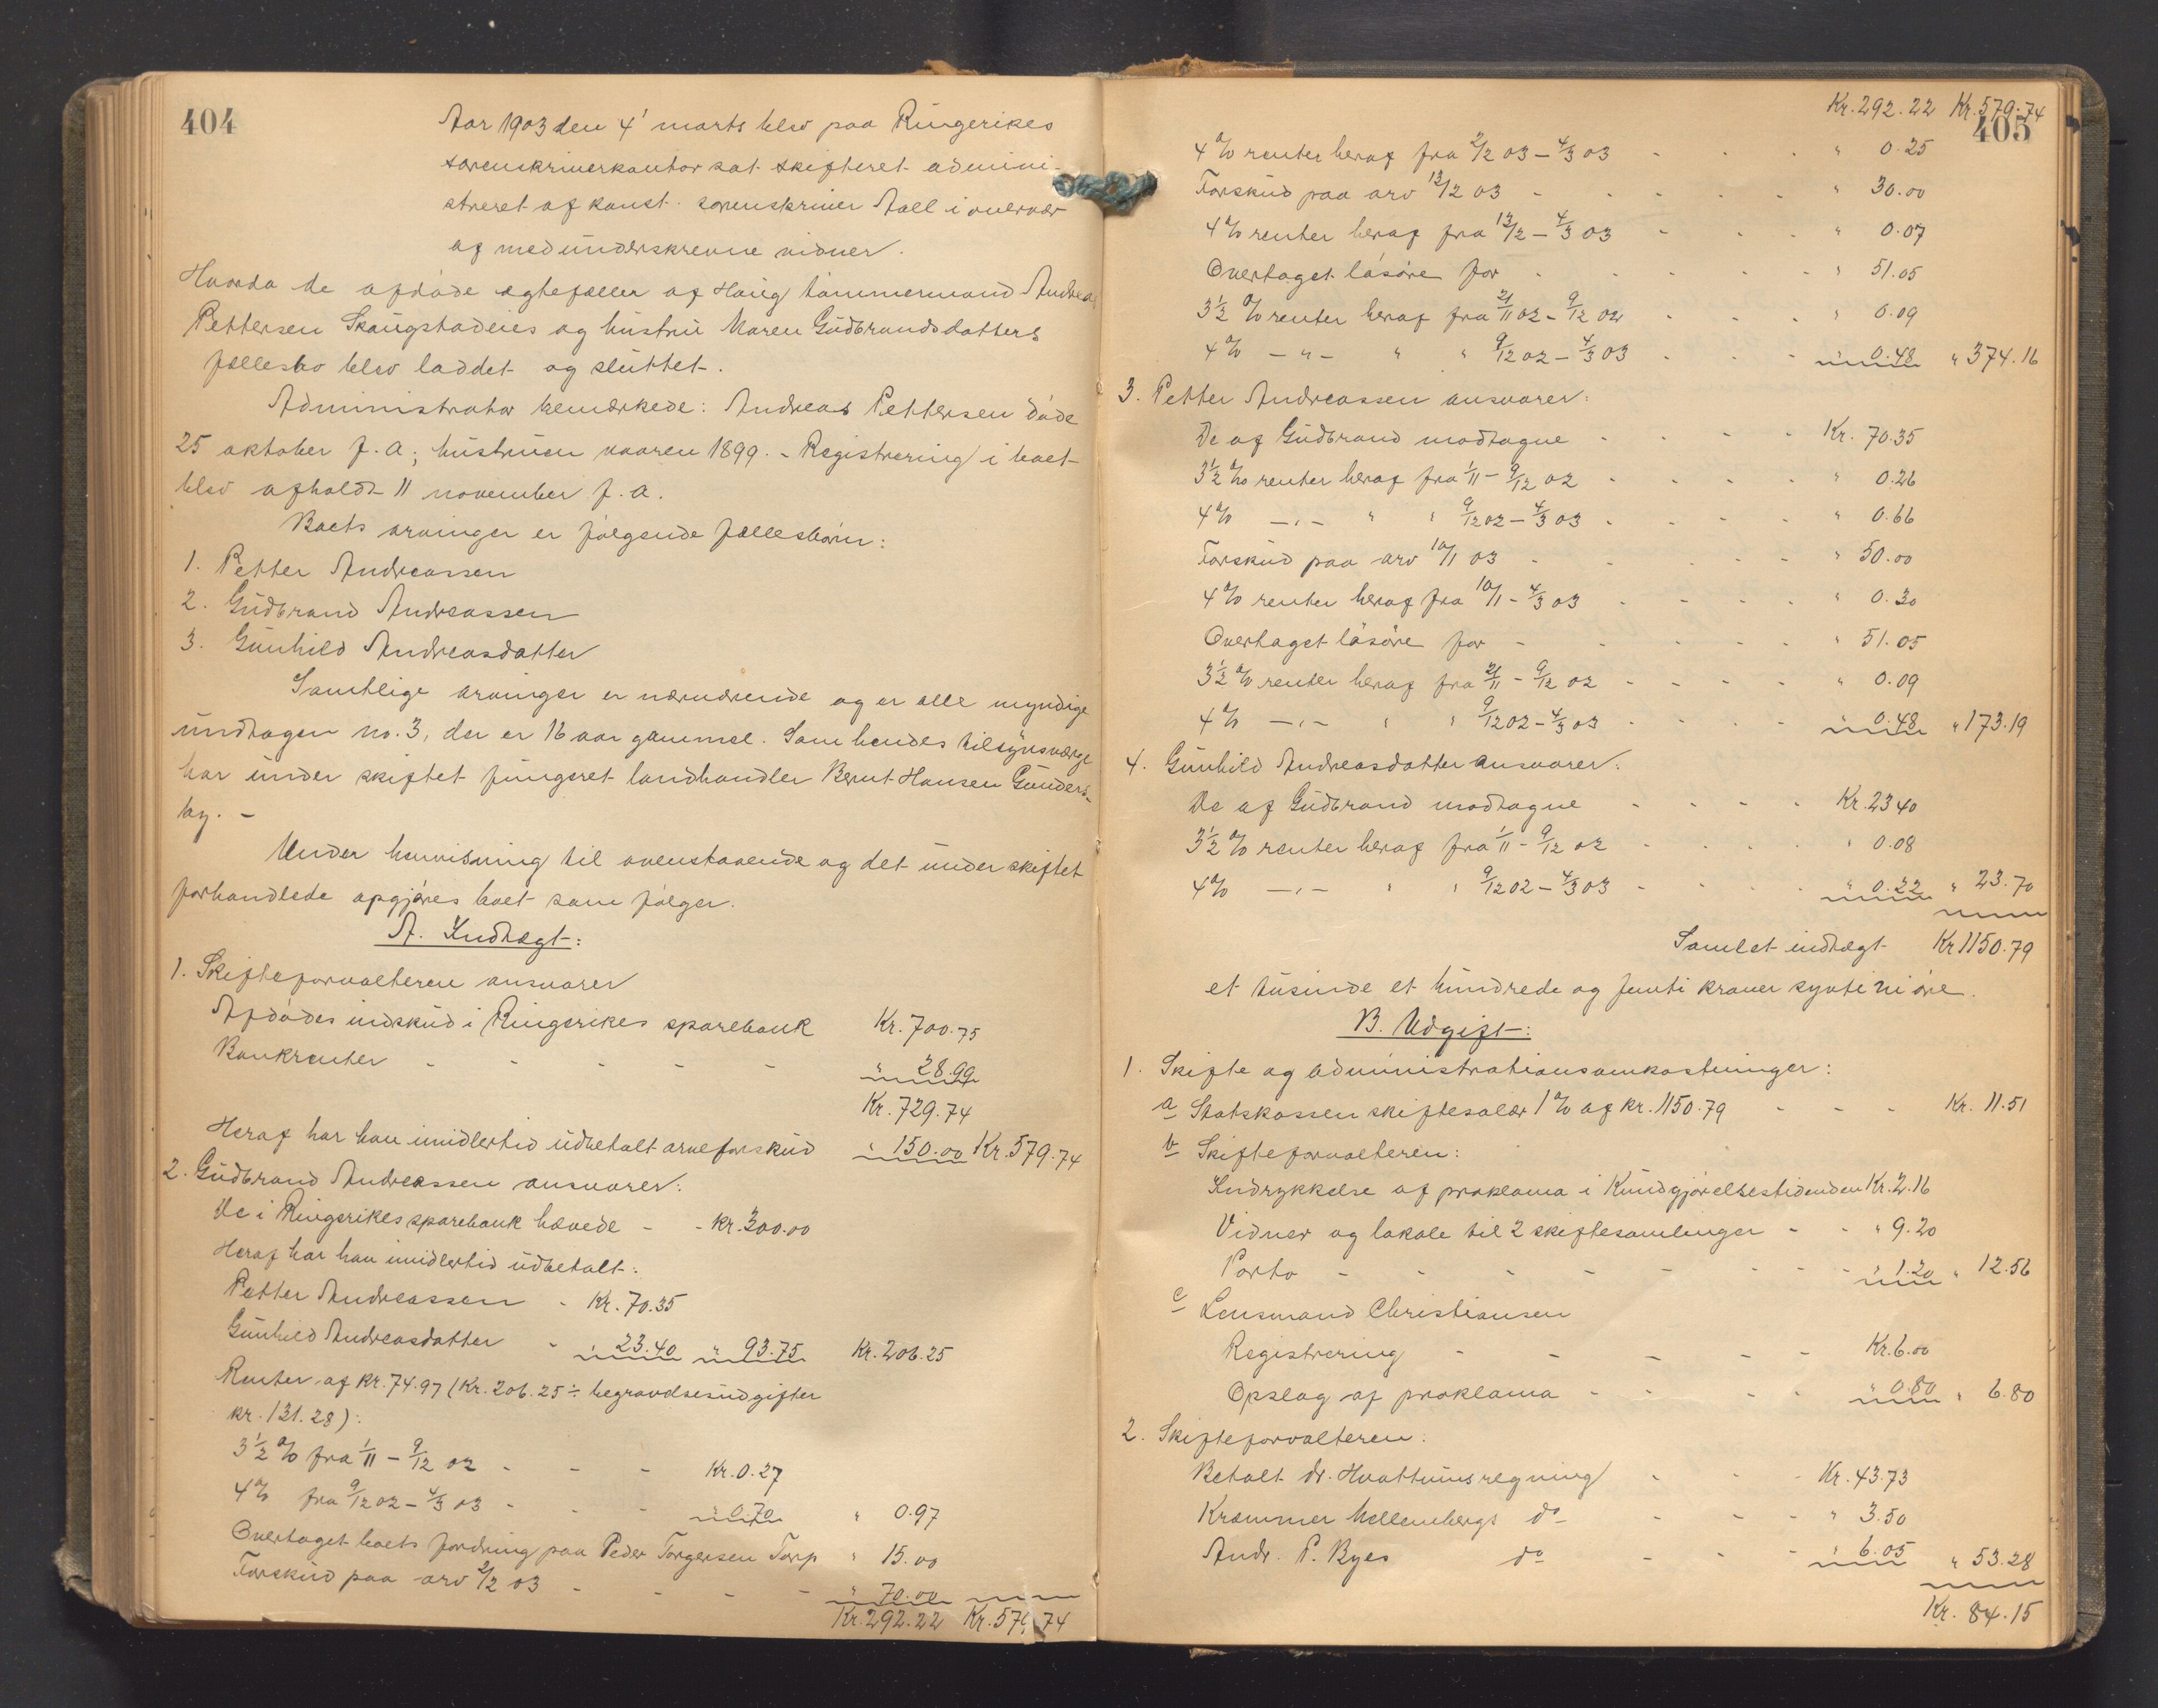 404
Aar 1903 den 4' marts blev paa Ringerikes
sorenskriverkontor sat skifteret admini-
streret af konst. sorenskriver Aall i overvær
af medunderskrevne vidner.
Hvorda de afdøde ægtefæller af Houg tømmermand Andreas
Pettersen Skougstadeies og hustru Maren Gudbrandsdatters
fællesbo blev loddet og sluttet.
Administrator bemærkede: Andreas Pettersen døde
25 oktober f.a.; hustruen vaaren 1899. - Registrering i boet
blev afholdt 11 november f.a.
Boets arvinger er følgende fællesbørn:
1. Petter Andreassen
2. Gudbrand Andreassen
3. Gunhild Andreasdatter
Samtlige arvinger er nærværende og er alle myndige
undtagen no. 3, der er 16 aar gammel. Som hendes tilsynsværge
har under skiftet fungeret landhandler Bernt Hansen Gunders-
by. -
Under henvisning til ovenstaaende og det under skiftet
forhandlede opgjøres boet som følger.
A. Indtægt:
1. Skifteforvalteren ansvarer
Afdødes indskud i Ringerikes sparebank Kr. 700.75
Bankrenter - - - - - " 28.99
Kr. 729.74
Heraf har han imidlertid udbetalt arveforskud " 150.00 Kr. 579.74
2. Gudbrand Andreassen ansvarer:
De i Ringerikes sparebank hævede - - Kr. 300.00
Heraf har han imidlertid udbetalt:
Petter Andreassen - Kr. 70.35
Gunhild Andreasdatter - " 23.40 " 93.75 Kr. 206.25
Renter af kr. 74.97 (Kr. 206.25 ÷ begravelsesudgifter
kr. 131.28):
3½ % fra 1/11 - 9/12 02 - - - Kr. 0.27
4 % fra 9/12 02 - 4/3 03 - - - " 0.70 " 0.97
Overtaget boets fordring paa Peder Torgersen Torp " 15.00
Forskud paa arv 2/2 03 - - - - " 70.00
Kr. 292.22 Kr. 579.74
405
Kr. 292.22 Kr. 579.74
4 % renter heraf fra 2/2 03 - 4/3 03 - - - " 0.25
Forskud paa arv 13/2 03 - - - - " 30.00
4 % renter heraf fra 13/2 - 4/3 03 - - - " 0.07
Overtaget løsøre for - - - - " 51.05
3½ % renter heraf fra 21/11 02 - 9/12 02 - - - " 0.09
4 % - " - " " 9/12 02 - 4/3 03 - - - " 0.48 " 374.16
3. Petter Andreassen ansvarer:
De af Gudbrand modtagne - - - - Kr. 70.35
3½ % renter heraf fra 1/11 - 9/12 02 - - - - " 0.26
4 % - " - " " 9/12 02 - 4/3 03 - - - - " 0.66
Forskud paa arv 10/1 03 - - - - - " 50.00
4 % renter heraf fra 10/1 - 4/3 03 - - - - " 0.30
Overtaget løsøre for - - - - - " 51.05
3½ % renter heraf fra 21/11 - 9/12 02 - - - - " 0.09
4 % - " - " " 9/12 02 - 4/3 03 - - - - " 0.48 " 173.19
4. Gunhild Andreasdatter ansvarer:
De af Gudbrand modtagne - - - - Kr. 23 40
3½ % renter heraf fra 1/11 - 9/12 02 - - - - " 0.08
4 % - " - " " 9/12 02 - 4/3 03 - - - - " 0.22 " 23.70
Samlet indtægt Kr 1150.79
et tusinde et hundrede og femti kroner sytti ni øre.
B. Udgift:
1. Skifte og administrationsomkostninger:
a Statskassen skiftesalær 1 % af kr. 1150.79 - - - Kr. 11.51
b Skifteforvalteren:
Indrykkelse af proklama i Kundgjørelsestidenden Kr. 2.16
Vidner og lokale til 2 skiftesamlinger - - " 9.20
Porto - - - - - - - " 1.20 " 12.56
c Lensmand Christiansen
Registrering - - - - - Kr. 6.00
Opslag af proklama - - - - " 0.80 " 6.80
2. Skifteforvalteren:
Betalt dr. Hvattums regning - - - Kr. 43.73
Kræmmer Mellembergs do - - - " 3.50
Andr. P. Byes do - - - " 6.05 " 53.28
Kr. 84.15